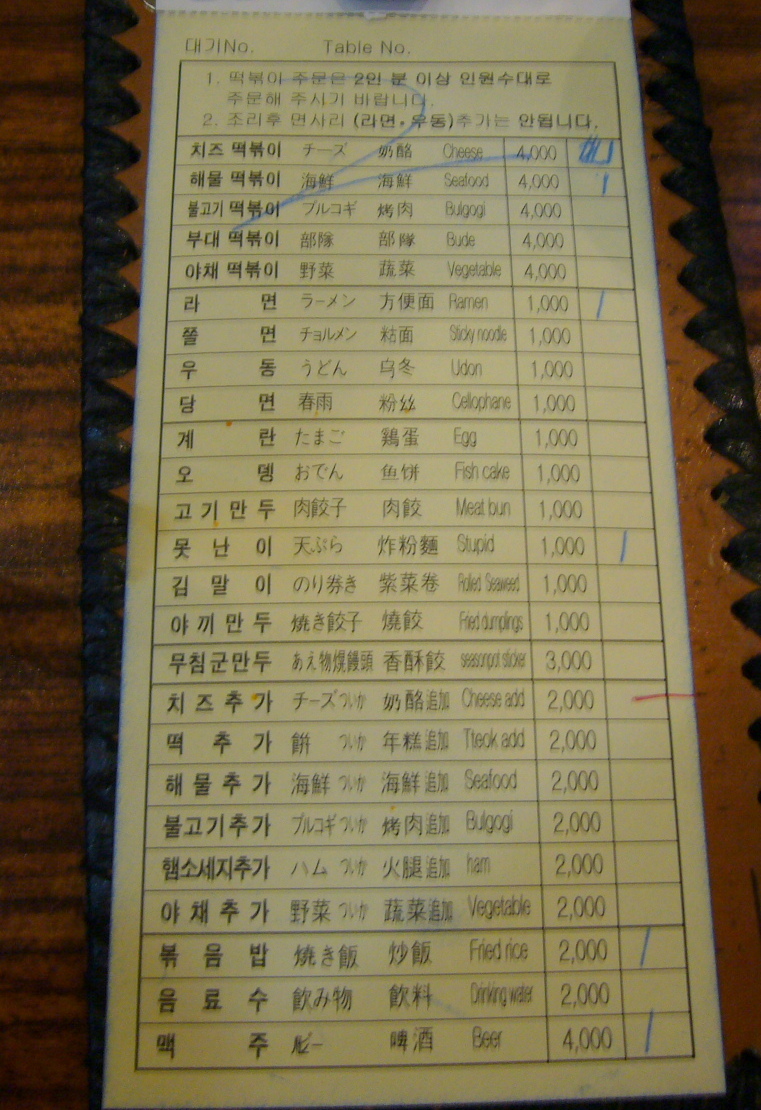 대기No. Table No.
1. 떡볶이 주문은 2인 분 이상 인원수대로
주문해 주시기 바랍니다.
2. 조리후 면사리 (라면•우동)추가는 안됩니다.
치즈 떡볶이 チーズ 奶酪 Cheese 4,000
해물 떡볶이 海鮮 海鮮 Seafood 4,000
불고기 떡볶이 プルコギ 烤肉 Bulgogi 4,000
부대 떡볶이 部隊 部隊 Bude 4,000
야채 떡볶이 野菜 蔬菜 Vegetable 4,000
라 면 ラーメン 方便面 Ramen 1,000
쫄 면 チョルメン 粘面 Sticky noodle 1,000
우 동 うどん 乌冬 Udon 1,000
당 면 春雨 粉丝 Cellophane 1,000
계 란 たまご 鶏蛋 Egg 1,000
오 뎅 おでん 鱼饼 Fish cake 1,000
고 기 만 두 肉餃子 肉餃 Meat bun 1,000
못 난 이 天ぷら 炸粉麵 Stupid 1,000
김 말 이 のり券き 紫菜卷 Rolled Seaweed 1,000
야 끼 만 두 焼き餃子 燒餃 Fried dumplings 1,000
무침군만두 あえ物熀饅頭 香酥餃 seasonpot sticker 3,000
치 즈 추 가 チーズついか 奶酪追加 Cheese add 2,000
떡 추 가 餠 ついか 年糕追加 Tteok add 2,000
해 물 추 가 海鮮 ついか 海鮮追加 Seafood 2,000
불고기추가 プルコギついか 烤肉追加 Bulgogi 2,000
햄소세지추가 ハム ついか 火腿追加 ham 2,000
야 채 추 가 野菜 ついか 蔬菜追加 Vegetable 2,000
볶 음 밥 焼き飯 炒飯 Fried rice 2,000
음 료 수 飲み物 飲料 Drinking water 2,000
맥 주 ビー 啤酒 Beer 4,000